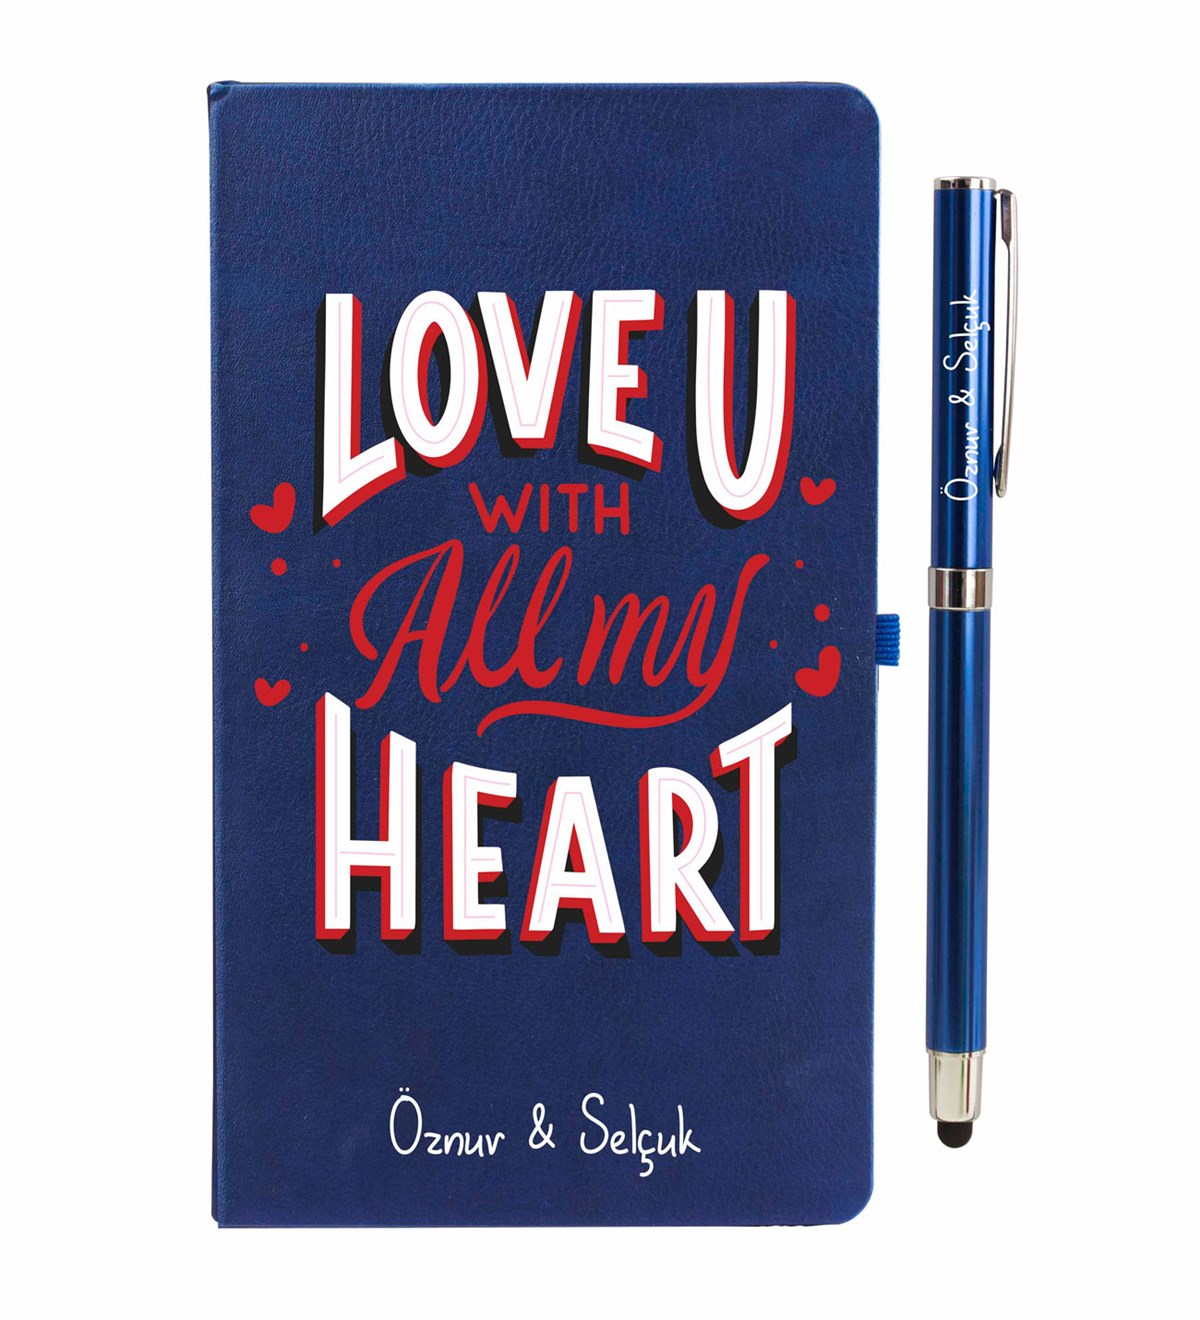 LOVE U
WITH
All my
HEART
Öznur & Selçuk
Öznur & Selçuk